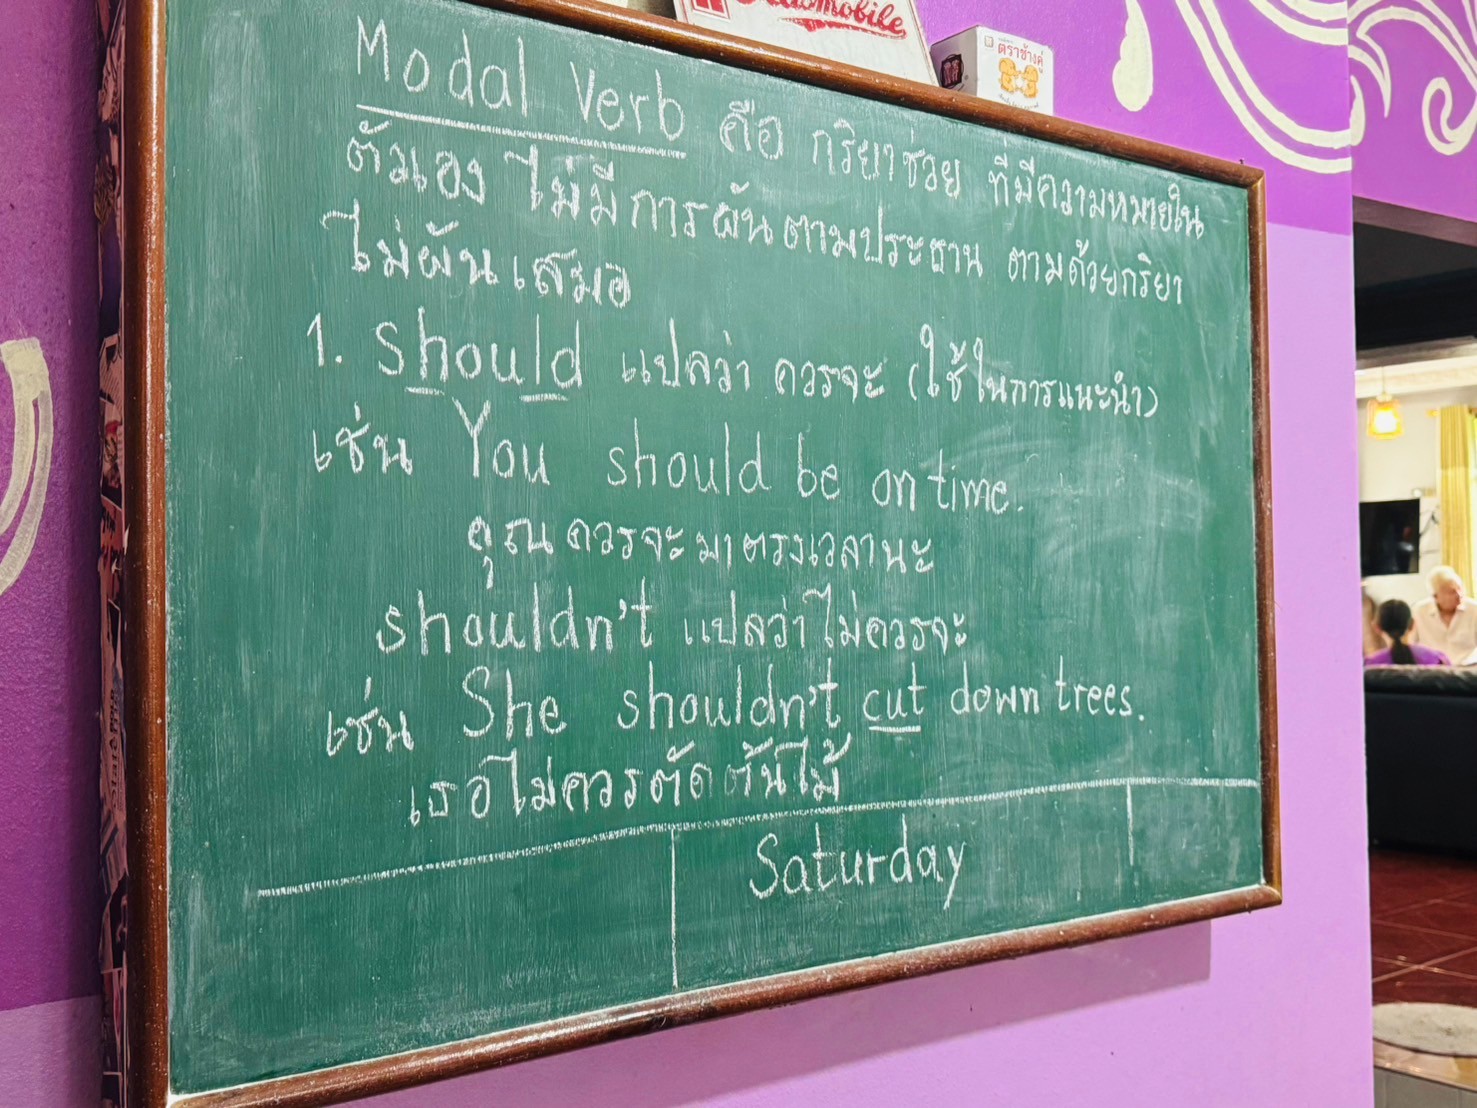 Automobile
ตราช้างคู่
Modal Verb คือ กริยาช่วย ที่มีความหมายใน
ตัวเอง ไม่มีการผันตามประธาน ตามด้วยกริยา
ไม่ผันเสมอ
1. should แปลว่า ควรจะ (ใช้ในการแนะนำ)
เช่น You should be on time.
คุณควรจะมาตรงเวลานะ
shouldn't แปลว่า ไม่ควรจะ
เช่น She shouldn't cut down trees.
เธอไม่ควรตัดต้นไม้
Saturday